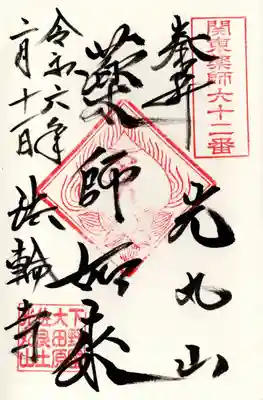 関東薬師六十二番
奉拝
光丸山
薬師如来
令和六年
月十一日
法輪寺
大田原
佐良土
光丸山